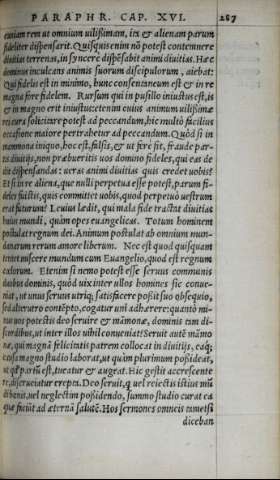 PARAPHR. CAP. XVI. 287
etiam rem ut omnium uilissimam, ita & alienam parum
fideliter dispensarit. Quisquis enim nõ potest contemnere
diuitias terrenas, in syncere dispẽsabit animi diuitias. Hæc
dominus inculcans animis suorum discipulorum, aiebat:
Qui fidelis est in minimo, hunc consentaneum est & in re
magna fore fidelem. Rursum qui in pusillo iniustus est, is
& in magno erit iniustus: etenim cuius animum uilissimæ
rei cura solicitare potest ad peccandum, hic multò facilius
occasione maiore pertrahetur ad peccandum. Quòd si in
mammona iniquo, hoc est, falsis, & ut ferè fit, fraude par-
tis diuitijs, non præbueritis uos domino fideles, qui eas de
dit dispensandas: ueras animi diuitias quis credet uobis?
Et si in re aliena, quæ nulli perpetua esse potest, parum fi-
deles fuistis, quis committet uobis, quod perpetuò uestrum
erat futurum? Leuius lædit, qui mala fide tractat diuitias
huius mundi, quàm opes euangelicas. Totum hominem
postulat regnum dei. Animum postulat ab omnium mun-
danarum rerum amore liberum. Nec est quod quisquam
tentet miscere mundum cum Euangelio, quod est regnum
cælorum. Etenim si nemo potest esse seruus communis
duobus dominis, quòd uix inter ullos homines sic conue-
niat, ut unus seruus utriq; satisfacere possit suo obsequio,
sed alterutro contẽpto, cogatur uni adhærere: quantò mi-
nus uos potestis deo seruire & mãmonæ, dominis tam di-
scordibus, ut inter illos nihil conueniat? Seruit autẽ mãmo
næ, qui magnã felicitatis partem collocat in diuitijs, eaq;
causa magno studio laborat, ut quàm plurimum possideat,
ut qđ partũ est, tueatur & augeat. Hic gestit accrescente
re, discruciatur erepta. Deo seruit, q uel reiectis istius mũ
di bonis, uel neglectim possidendo, summo studio curat ea
quæ faciũt ad æternã salutẽ. Hos sermones omneis tametsi
diceban